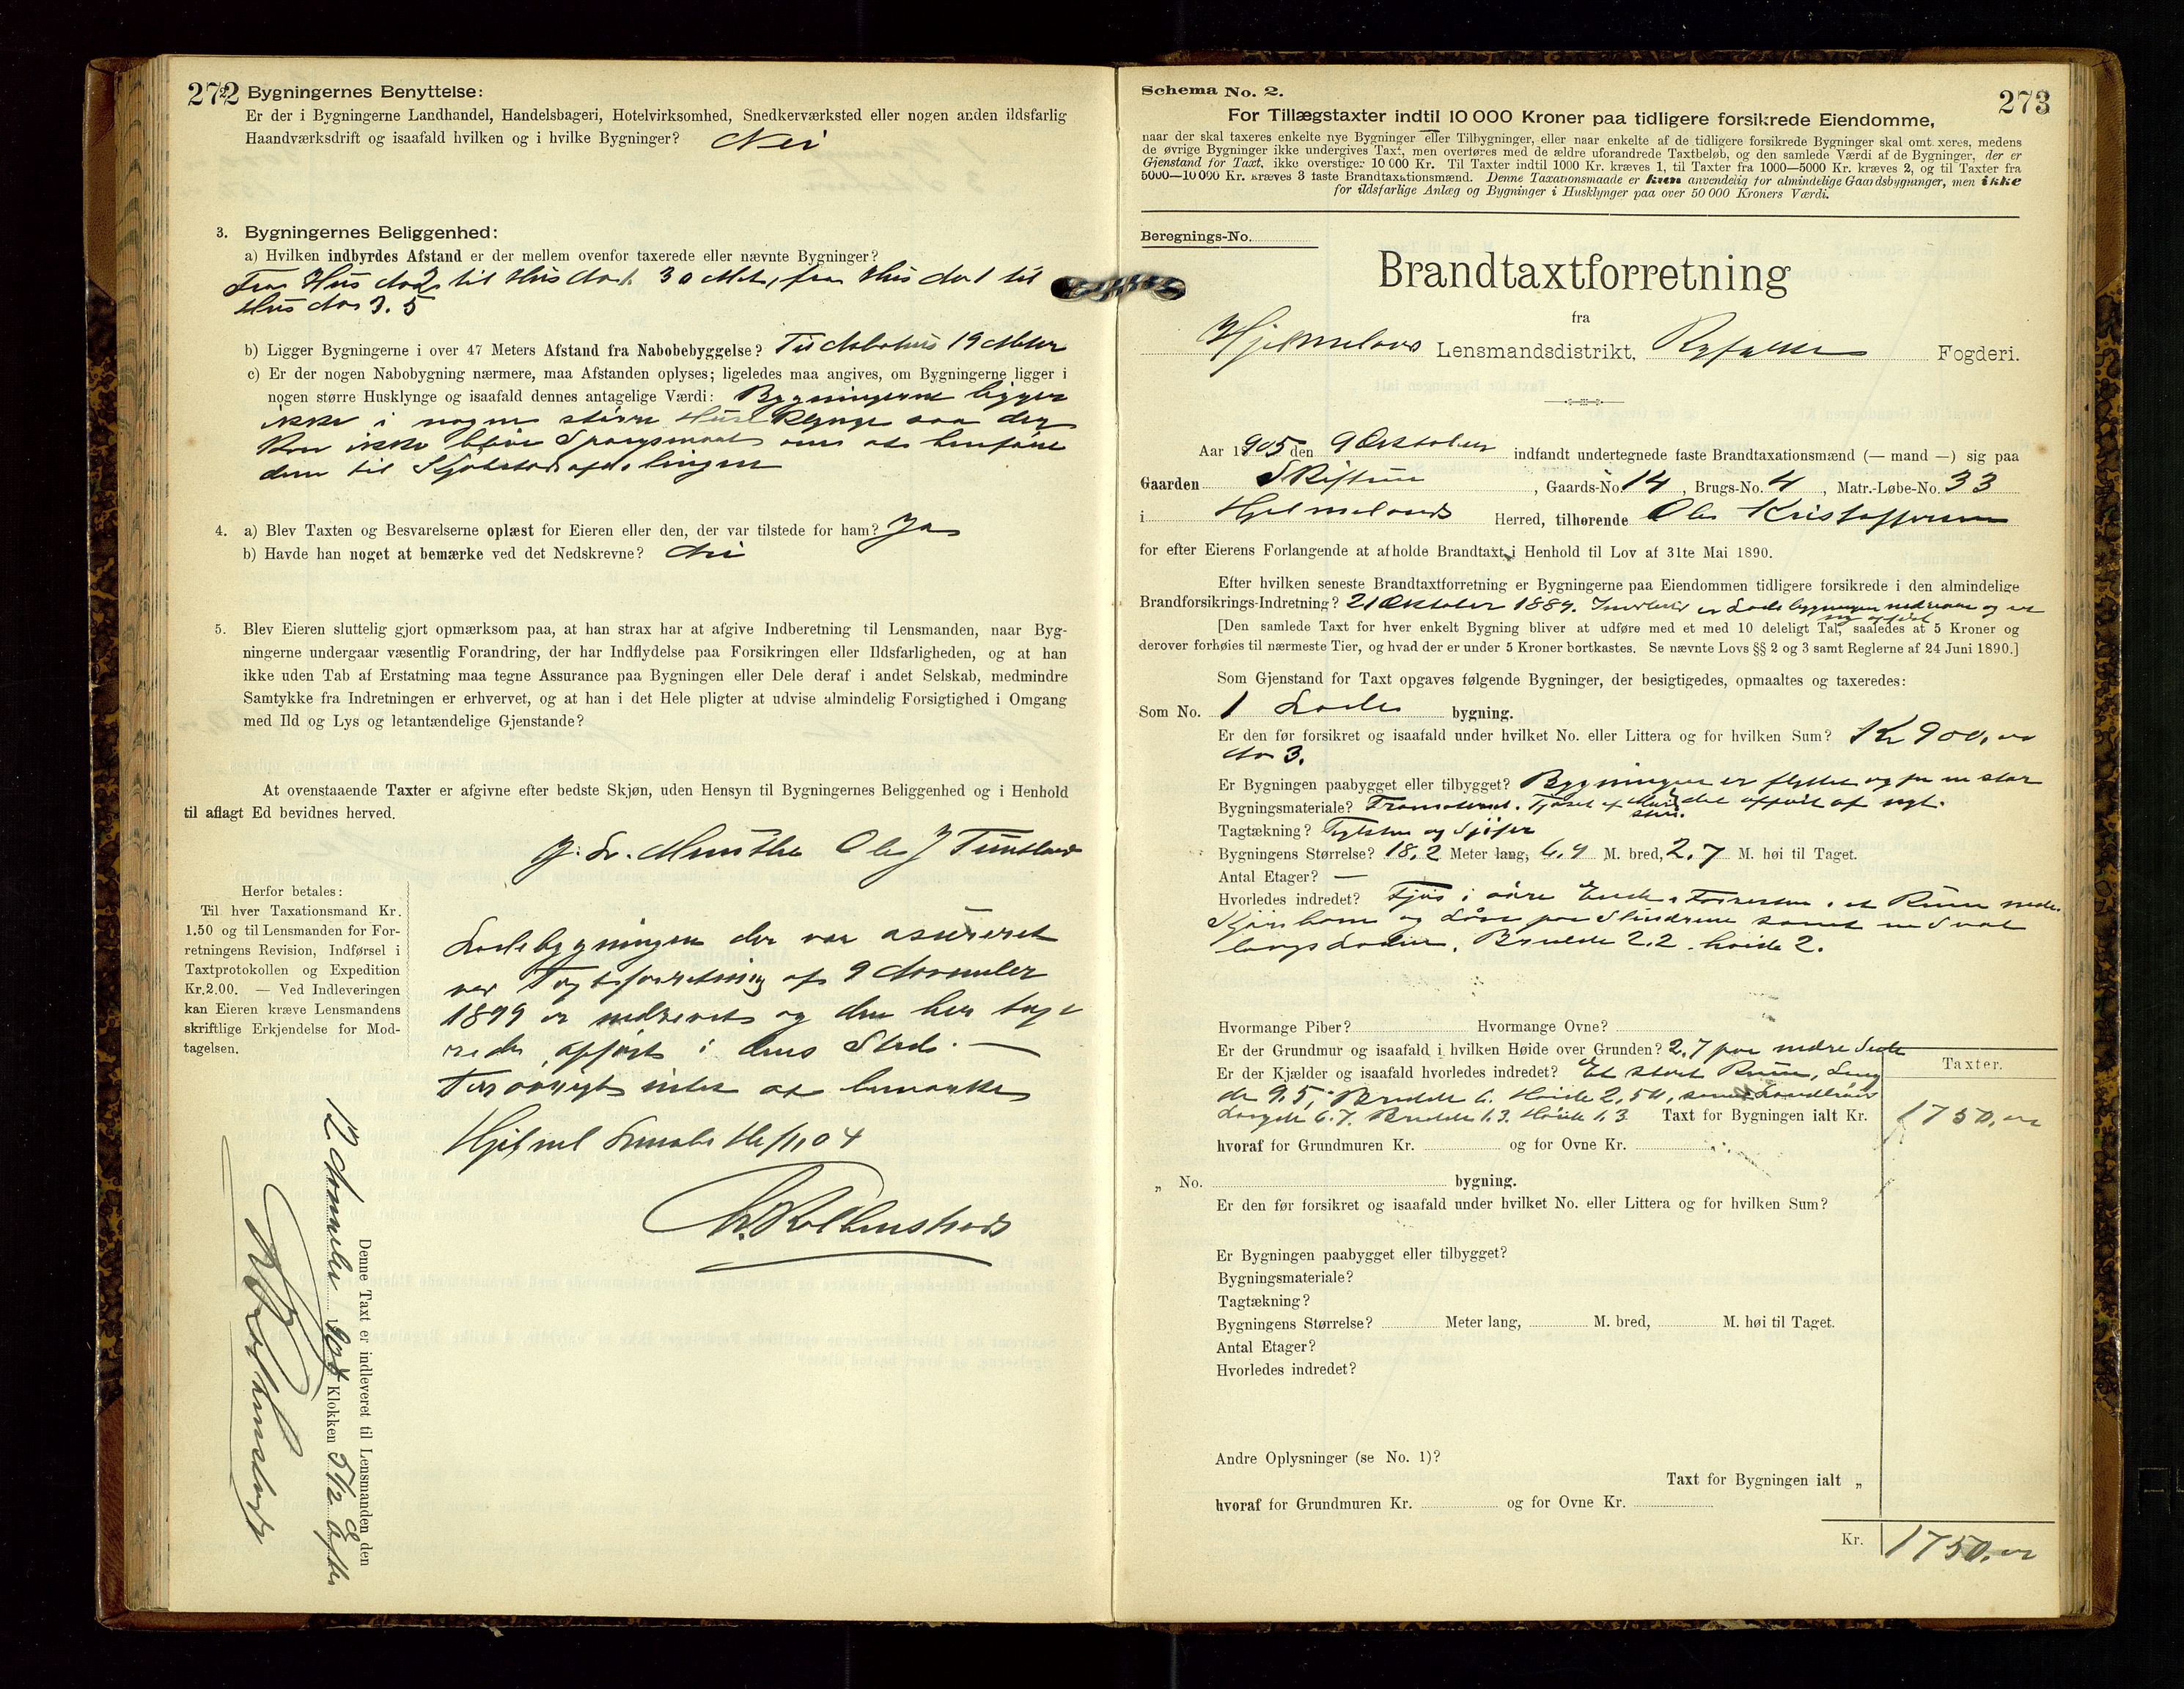 272 Bygningernes Benyttelse:
Er der i Bygningerne Landhandel, Handelsbageri, Hotelvirksomhed, Snedkerværksted eller nogen anden ildsfarlig
Haandværksdrift og isaafald hvilken og i hvilke Bygninger? Nei
3. Bygningernes Beliggenhed:
a) Hvilken indbyrdes Afstand er der mellem ovenfor taxerede eller nævnte Bygninger?
Fra Hus No 2 til Hus No 1 30 Met, fra Hus No 1 til
Hus No 3. 5
b) Ligger Bygningerne i over 47 Meters Afstand fra Nabobebyggelse? Til Nabohus 19 Meter
c) Er der nogen Nabobygning nærmere, maa Afstanden oplyses; ligeledes maa angives, om Bygningerne ligger i
nogen større Husklynge og isaafald dennes antagelige Værdi: Bygningerne ligger
ikke i nogen större Husklynge saa der
kan ikke blive Spørgsmaal om at henføre
dem til Kjøbstadsafdelingen
4. a) Blev Taxten og Besvarelserne oplæst for Eieren eller den, der var tilstede for ham? Ja
b) Havde han noget at bemærke ved det Nedskrevne? Nei
5. Blev Eieren sluttelig gjort opmærksom paa, at han strax har at afgive Indberetning til Lensmanden, naar Byg-
ningerne undergaar væsentlig Forandring, der har Indflydelse paa Forsikringen eller Ildsfarligheden, og at han
ikke uden Tab af Erstatning maa tegne Assurance paa Bygningen eller Dele deraf i andet Selskab, medmindre
Samtykke fra Indretningen er erhvervet, og at han i det Hele pligter at udvise almindelig Forsigtighed i Omgang
med Ild og Lys og letantændelige Gjenstande?
At ovenstaaende Taxter er afgivne efter bedste Skjøn, uden Hensyn til Bygningernes Beliggenhed og i Henhold
til aflagt Ed bevidnes herved.
Munthe Ole J
Herfor betales:
Til hver Taxationsmand Kr.
1.50 og til Lensmanden for For-
retningens Revision, Indførsel i
Taxtprotokollen og Expedition
Kr. 2.00. — Ved Indleveringen
kan Eieren kræve Lensmandens
skriftlige Erkjendelse for Mod-
tagelsen.
Ladebygningen der var asureret
ved Taxtforretning af 9 November
1899 er nedrevet og den her taxe
rede opført i dens Sted. —
Forøvrigt intet at bemærke
Hjelmel 04
Denne Taxt er indleveret til Lensmanden den
12 November 1904 Klokken 5 1/2 Efter
273
Schema No. 2.
For Tillægstaxter indtil 10 000 Kroner paa tidligere forsikrede Eiendomme,
naar der skal taxeres enkelte nye Bygninger eller Tilbygninger, eller naar enkelte af de tidligere forsikrede Bygninger skal omtaxeres, medens
de øvrige Bygninger ikke undergives Taxt, men overføres med de ældre uforandrede Taxtbeløb, og den samlede Værdi af de Bygninger, der er
Gjenstand for Taxt, ikke overstiger 10 000 Kr. Til Taxter indtil 1000 Kr. kræves 1, til Taxter fra 1000—5000 Kr. kræves 2, og til Taxter fra
5000—10 000 Kr. kræves 3 faste Brandtaxationsmænd. Denne Taxationsmaade er kun anvendelig for almindelige Gaardsbygninger, men ikke
for ildsfarlige Anlæg og Bygninger i Husklynger paa over 50 000 Kroners Værdi.
Beregnings-No.
Brandtaxtforretning
fra
Hjelmelands Lensmandsdistrikt, Ryfylke Fogderi.
Aar 1905 den 9 Oktober indfandt undertegnede faste Brandtaxationsmænd (— mand —) sig paa
Gaarden Skiftun, Gaards-No. 14, Brugs-No. 4, Matr.-Løbe-No. 33
i Hjelmelands Herred, tilhørende Ole Kristoffersen
for efter Eierens Forlangende at afholde Brandtaxt i Henhold til Lov af 31te Mai 1890.
Efter hvilken seneste Brandtaxtforretning er Bygningerne paa Eiendommen tidligere forsikrede i den almindelige
Brandforsikrings-Indretning? 21 Oktober 1889. Imidlertid er Ladebygningen nedreven og er
ny opført
[Den samlede Taxt for hver enkelt Bygning bliver at udføre med et med 10 deleligt Tal, saaledes at 5 Kroner og
derover forhøies til nærmeste Tier, og hvad der er under 5 Kroner bortkastes. Se nævnte Lovs §§ 2 og 3 samt Reglerne af 24 Juni 1890.]
Som Gjenstand for Taxt opgaves følgende Bygninger, der besigtigedes, opmaaltes og taxeredes:
Som No. 1 Lade bygning.
Er den før forsikret og isaafald under hvilket No. eller Littera og for hvilken Sum? Kr 900,
No 3.
Er Bygningen paabygget eller tilbygget? Bygningen er flyttet og for en stor
Bygningsmateriale? del opført af nyt.
Tagtækning? Teglsten og
Bygningens Størrelse? 18,2 Meter lang, 6,9 M. bred, 2,7 M. høi til Taget.
Antal Etager? —
Hvorledes indredet? Fjøs i øvre Ende, et Rum neder
og Løve paa samt en Sval
langs. Bredde 2.2. høide 2.
Hvormange Piber? Hvormange Ovne?
Er der Grundmur og isaafald i hvilken Høide over Grunden? 2,7 paa nedre Side
Er der Kjælder og isaafald hvorledes indredet? Et stort Rum, Læng
de 9.5, Bredde 6. Høide 2,50, samt
Længde 6.7. Bredde 1.3. Høide 1.3 Taxt for Bygningen ialt Kr.
Taxter.
1750,
hvoraf for Grundmuren Kr. og for Ovne Kr.
„ No. bygning.
Er den før forsikret og isaafald under hvilket No. eller Littera og for hvilken Sum?
Er Bygningen paabygget eller tilbygget?
Bygningsmateriale?
Tagtækning?
Bygningens Størrelse? Meter lang, M. bred, M. høi til Taget.
Antal Etager?
Hvorledes indredet?
Andre Oplysninger (se No. 1)?
Taxt for Bygningen ialt „
hvoraf for Grundmuren Kr. og for Ovne Kr.
Kr. 1750,